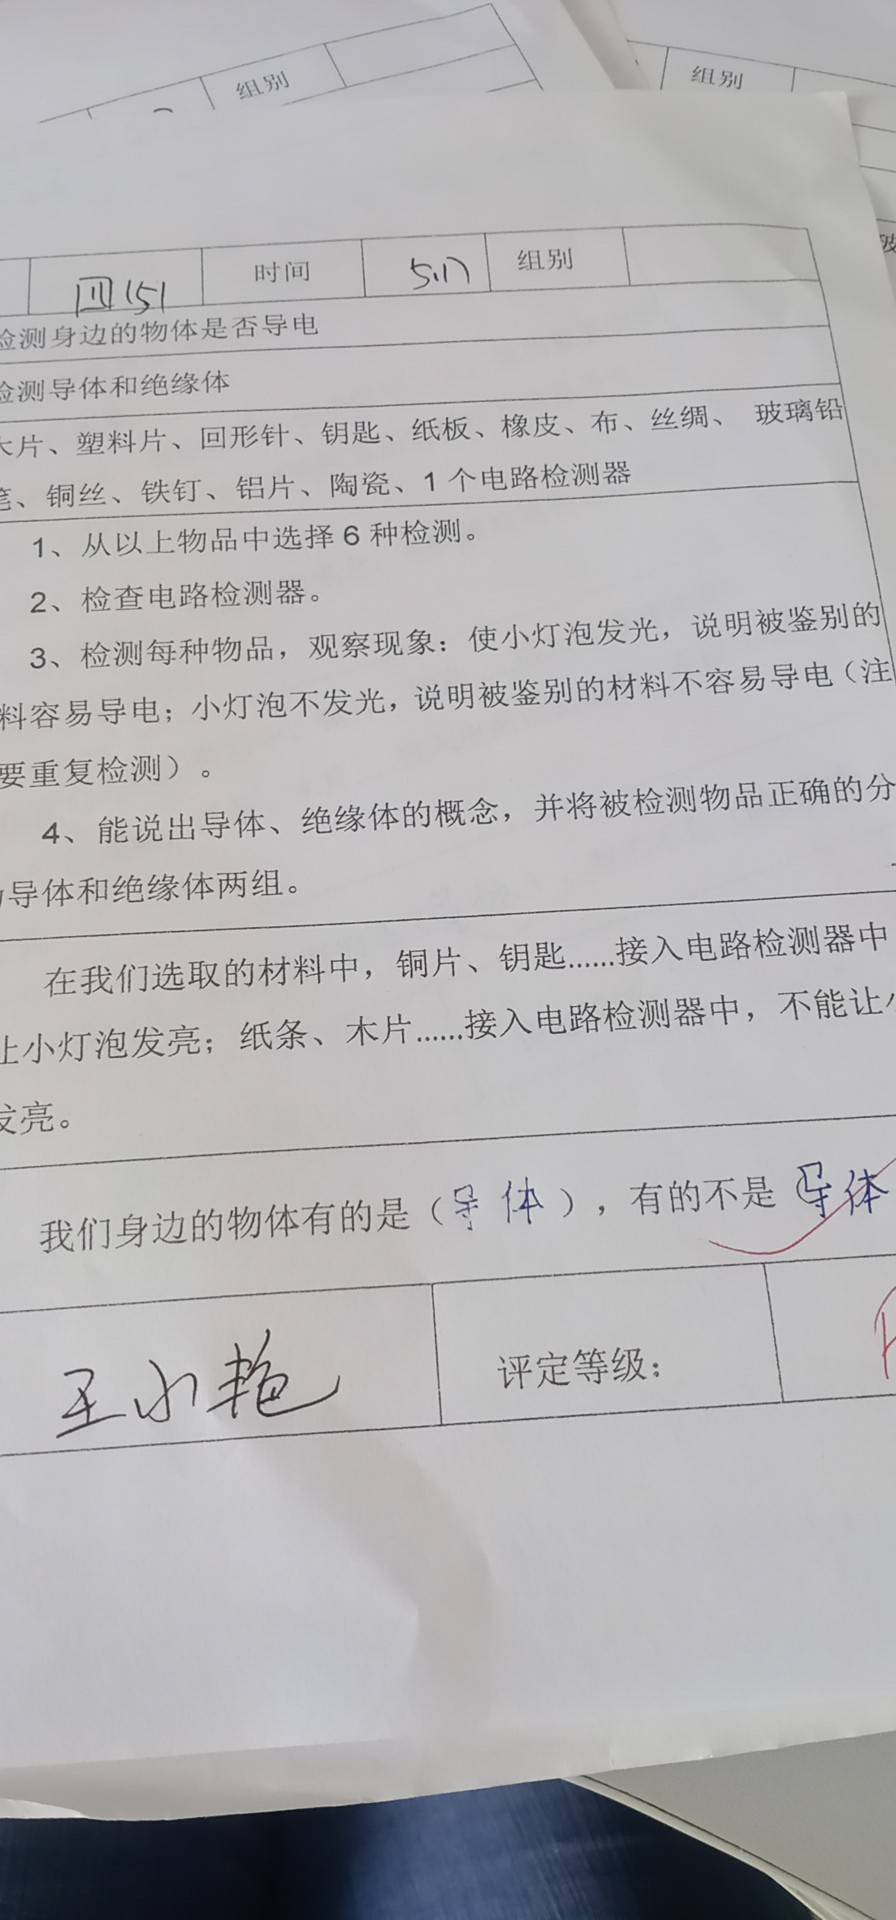 组别
组别
四(5) 时间 5.17 组别
检测身边的物体是否导电
检测导体和绝缘体
木片、塑料片、回形针、钥匙、纸板、橡皮、布、丝绸、 玻璃铅
笔、铜丝、铁钉、铝片、陶瓷、1 个电路检测器
1、从以上物品中选择 6 种检测。
2、检查电路检测器。
3、检测每种物品，观察现象：使小灯泡发光，说明被鉴别的
料容易导电；小灯泡不发光，说明被鉴别的材料不容易导电（注
要重复检测）。
4、能说出导体、绝缘体的概念，并将被检测物品正确的分
导体和绝缘体两组。
在我们选取的材料中，铜片、钥匙......接入电路检测器中
让小灯泡发亮；纸条、木片......接入电路检测器中，不能让小
发亮。
我们身边的物体有的是（导体），有的不是（导体
王小艳 评定等级：